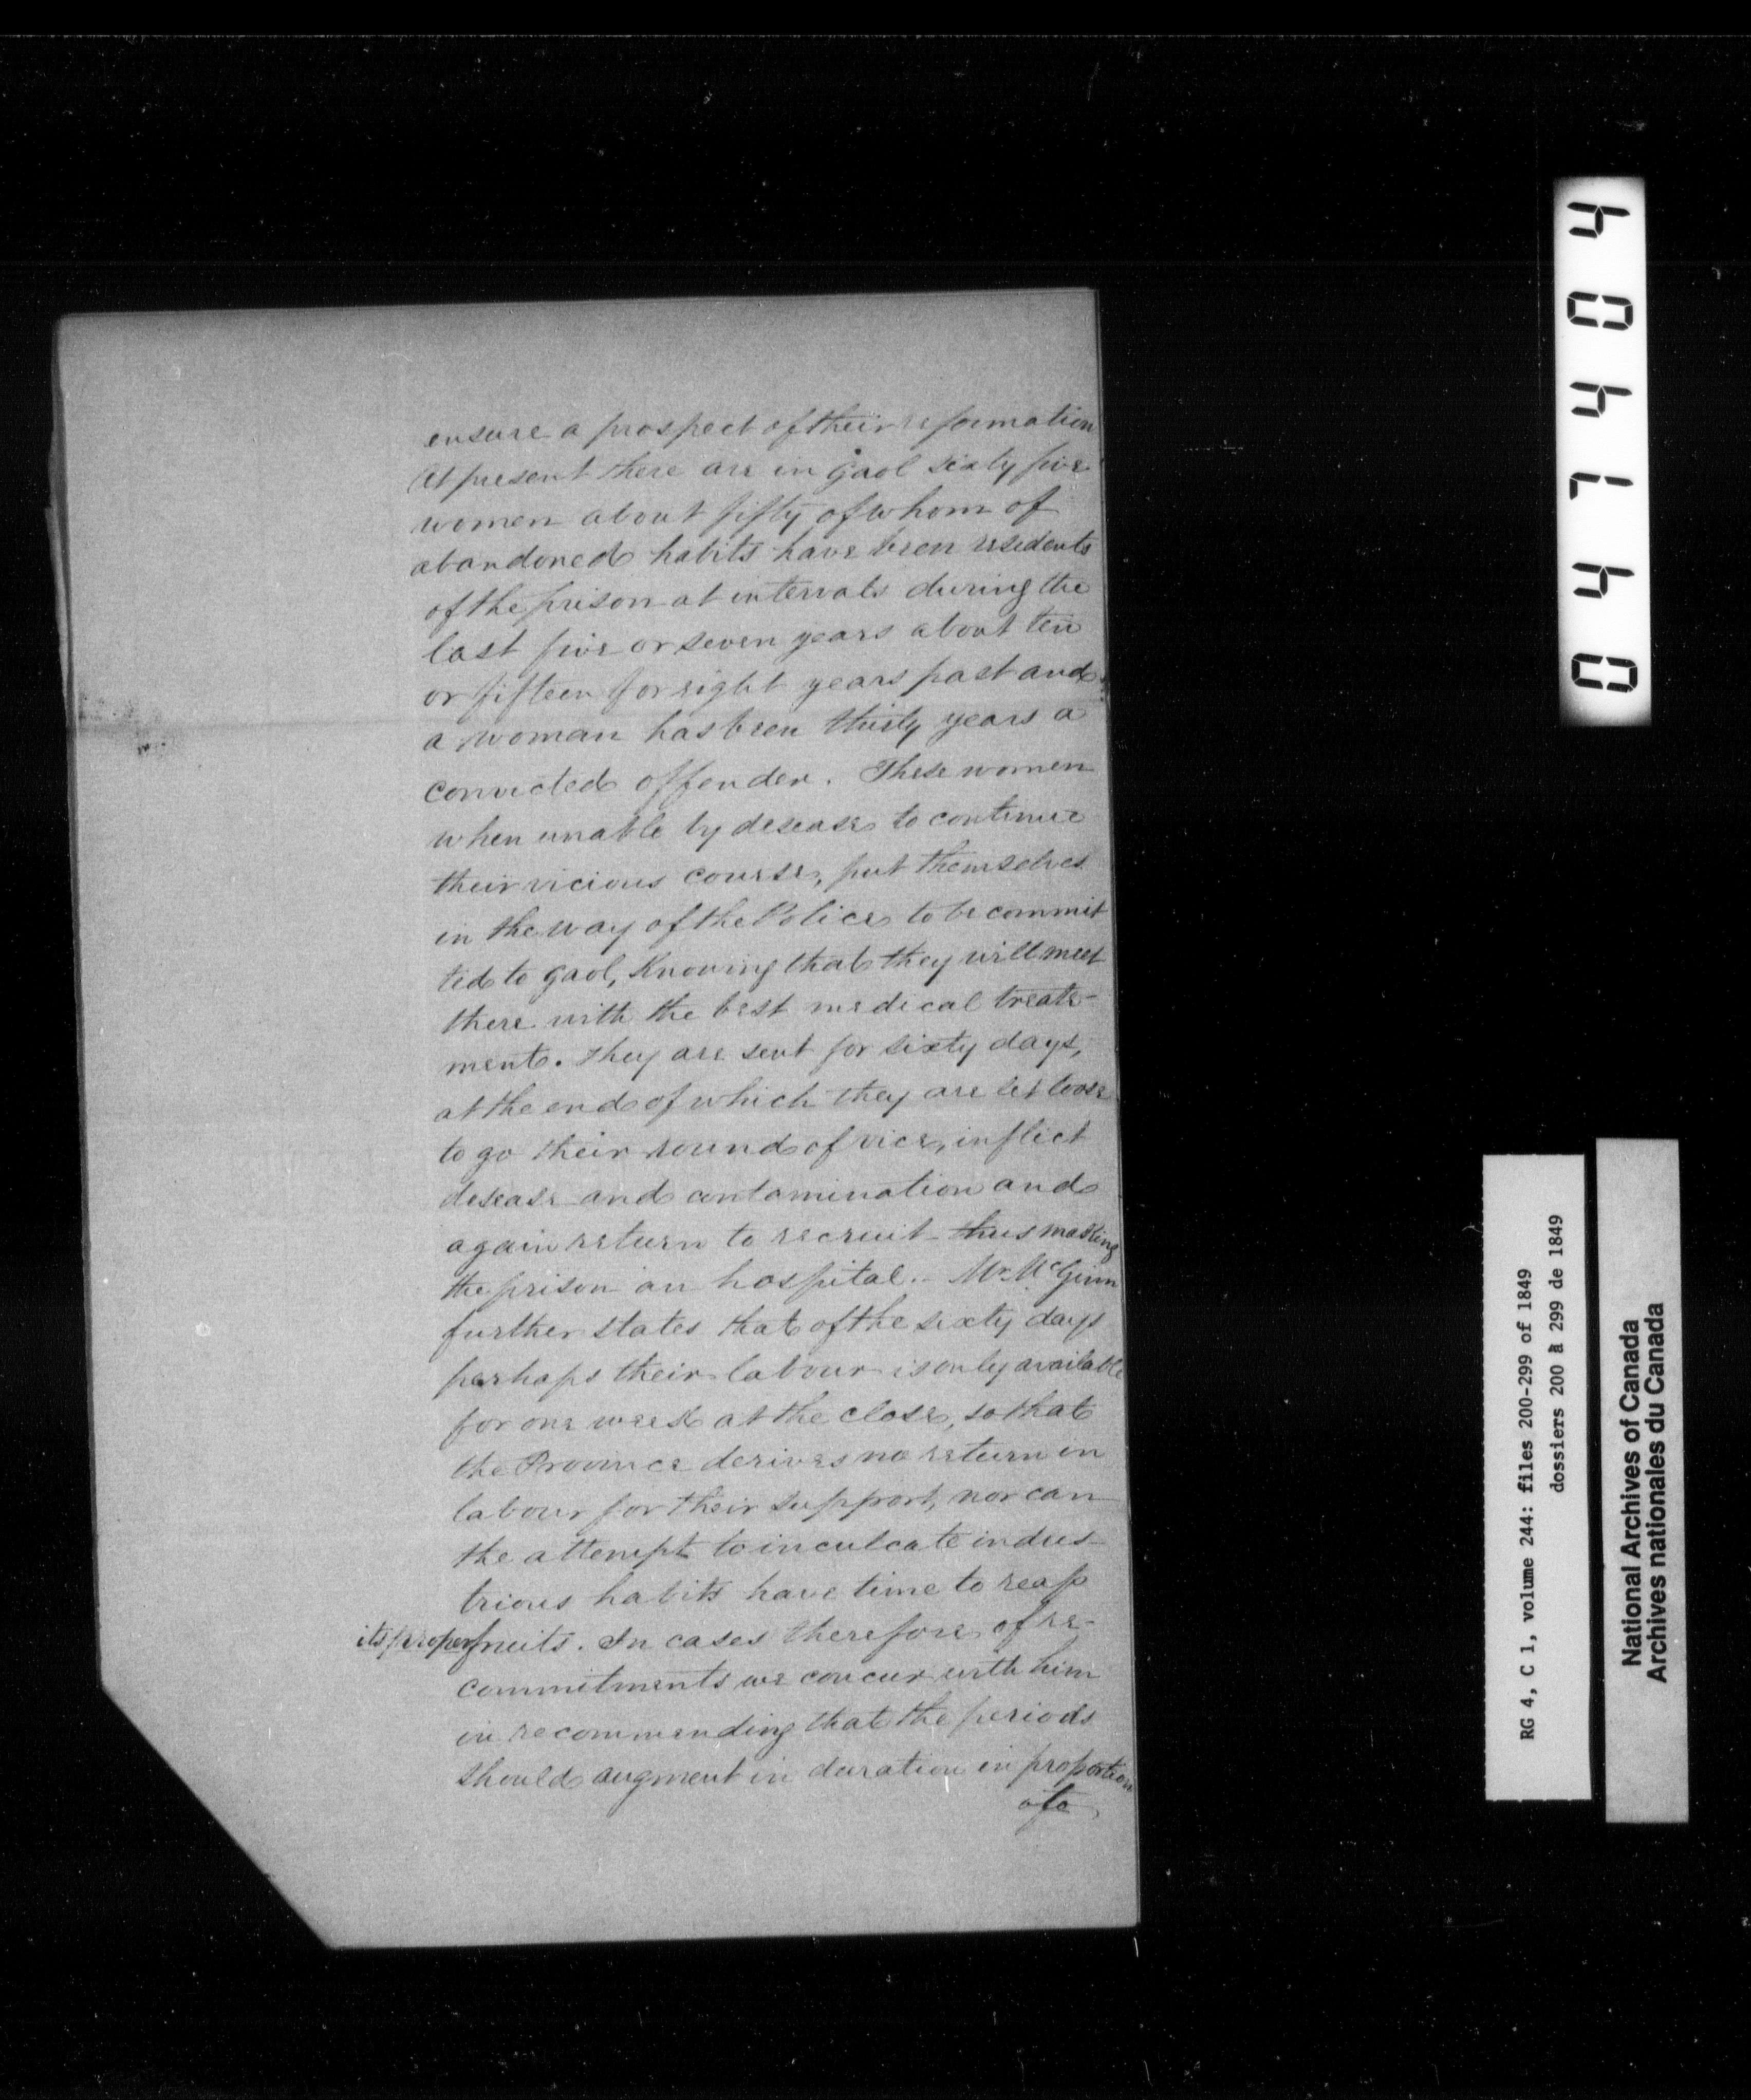 ensure a prospect of their reformation
At present there are in Gaol sixty five
women about fifty of whom of
abandoned habits have been residents
of the prison at intervals during the
last five or seven years about ten
or fifteen for eight years past and
a woman has been thirty years a
convicted offender. These women
when unable by desease to continue
their vicious course, put themselves
in the way of the Police to be commit
ted to gaol, Knowing that they will meet
there with the best medical treat-
ment. they are sent for sixty days,
at the end of which they are let loose
to go their round of vice, inflict
desease and contamination and
again return to recruit thus making
the prison an hospital. Mr. McGinn
further states that of the sixty days
perhaps their labour is only available
for one week at the close, so that
the Province derives no return in
labour for their support, nor can
the attempt to inculcate indus-
trious habits have time to reap
its proper fruits. In cases therefore of re-
commitments we concur with him
in recommending that the periods
should augment in duration in proportion
0441404
RG 4, C 1, volume 244: files 200-299 of 1849
dossiers 200 à 299 de 1849
National Archives of Canada
Archives nationales du Canada